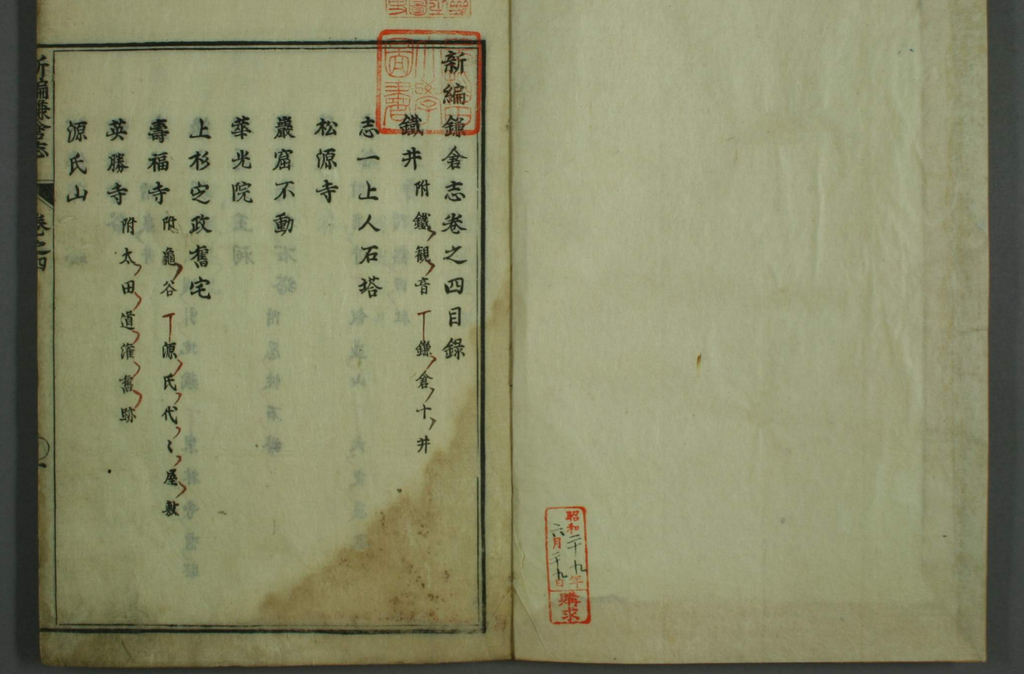 昭和二十九年
六月二十九日
購求
新編鎌倉志卷之四目錄
鐵井 附鐵觀音 鎌倉十井
志一上人石塔
松源寺
巖窟不動
華光院
上杉定政舊宅
壽福寺 附龜谷 源氏代〻屋敷
英勝寺 附太田道灌舊跡
源氏山
新編鎌倉志 卷之四 一